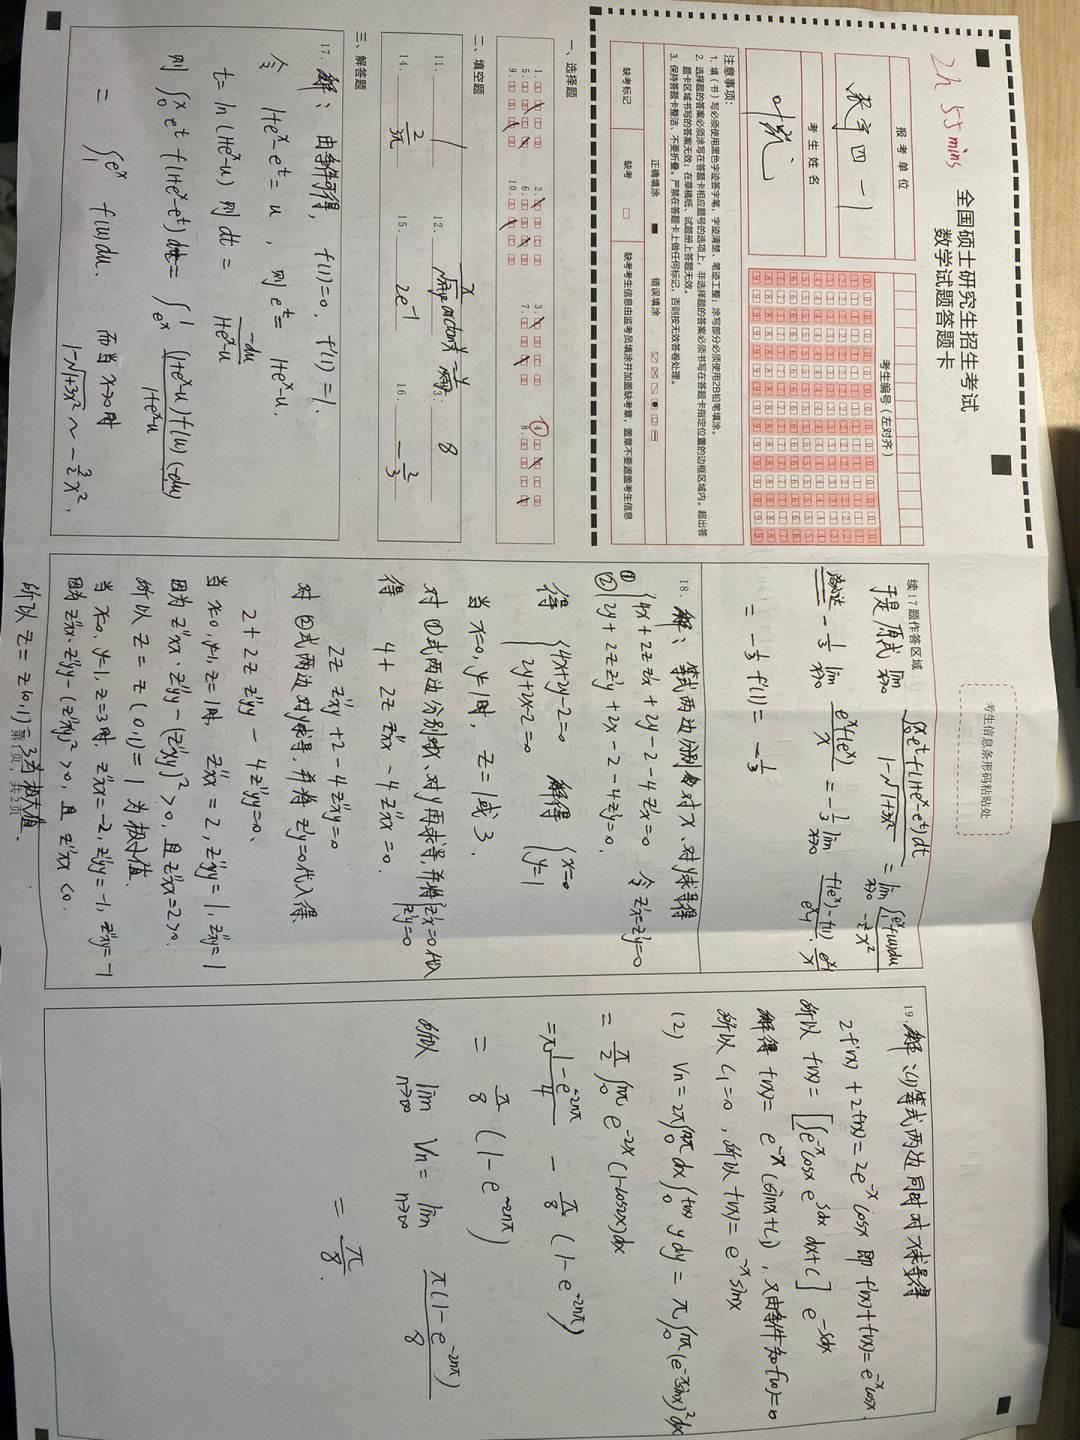 2h 55mins
全国硕士研究生招生考试
数学试题答题卡
报考单位
考生姓名
考生编号（左对齐）
注意事项：
1. 填（书）写必须使用黑色字迹签字笔，字迹清楚、笔迹工整；涂写部分必须使用2B铅笔填涂。
2. 选择题的答案必须涂写在答题卡相应题号的选项上，非选择题的答案必须书写在答题卡指定位置的边框区域内。超出答题卡区域书写的答案无效；在草稿纸、试题册上答题无效。
3. 保持答题卡整洁，不要折叠。严禁在答题卡上做任何标记，否则按无效答卷处理。
正确填涂
错误填涂
缺考标记
缺考
缺考考生信息由监考员填涂并加盖缺考章，盖章不要遮盖考生信息
一、选择题
1.
2.
3.
4
5.
6.
7.
8.
9.
10.
二、填空题
11. 1
12.
8
14. 2/3π
15. 2e^-1
16. -2/3
三、解答题
17. 解：由条件可得，f(1)=0，f'(1)=1.
令 1+e^x-e^t=u，则 e^t=1+e^x-u.
t=ln(1+e^x-u) 则 dt= -du/(1+e^x-u)
则 ∫₀^x e^t f(1+e^x-e^t)dt= ∫_{e^x}^1 (1+e^x-u)f(u)(-du)/(1+e^x-u)
= ∫₁^{e^x} f(u)du. 而当 x→0时
1-√(1+3x²) ~ -3/2 x².
续17题作答区域
于是 原式 lim_{x→0} ∫₀^x e^t f(1+e^x-e^t)dt/(1-√(1+3x²)) = lim_{x→0} ∫₁^{e^x} f(u)du/(-3/2 x²)
-1/3 lim_{x→0} e^x f(e^x)/x = -1/3 lim_{x→0} (f(e^x)-f(1))/(e^x-1) · (e^x-1)/x
= -1/3 f'(1)= -1/3
考生信息条形码粘贴处
18. 解：等式两边分别对x、对y求导得
① {4x+2z z'x+2y-2-4z'x=0 令 z'x=z'y=0
② {2y+2z z'y+2x-2-4z'y=0.
得 {4x+2y-2=0 解得 {x=0
{2y+2x-2=0 {y=1
当 x=0, y=1时，z=1或3.
对①式两边分别对x、对y再求导，并将{z'x=0 代入
{z'y=0
得 4+2z z''xx-4z''xx=0.
2z z''xy+2-4z''xy=0
对②式两边对y求导，并将 z'y=0代入得、
2+2z z''yy-4z''yy=0.
当x=0, y=1, z=1时，z''xx=2, z''yy=1, z''xy=1
因为 z''xx·z''yy-(z''xy)²>0，且z''xx=2>0.
所以 z=z(0,1)=1 为极小值.
当x=0, y=1, z=3时，z''xx=-2, z''yy=-1, z''xy=-1
因为 z''xx·z''yy-(z''xy)²>0，且 z''xx<0.
所以 z=z(0,1)=3为极大值.
第1页，共2页
19. 解：(1)等式两边同时对x求导得
2f'(x)+2f(x)=2e^-x cosx 即 f'(x)+f(x)=e^-x cosx.
所以 f(x)=[∫e^-x cosx e^∫dx dx+C] e^-∫dx
解得 f(x)=e^-x(sinx+C₁)，又由条件知f(0)=0
所以 C₁=0，所以 f(x)=e^-x sinx
(2) Vn=2π∫₀^nπ dx∫₀^f(x) y dy = π∫₀^nπ (e^-x sinx)²dx
= π/2 ∫₀^nπ e^-2x(1-cos2x)dx
=π (1-e^-2nπ)/4 - π/8 (1-e^-2nπ)
= π/8 (1-e^-2nπ)
所以 lim_{n→∞} Vn= lim_{n→∞} π(1-e^-2nπ)/8
= π/8.